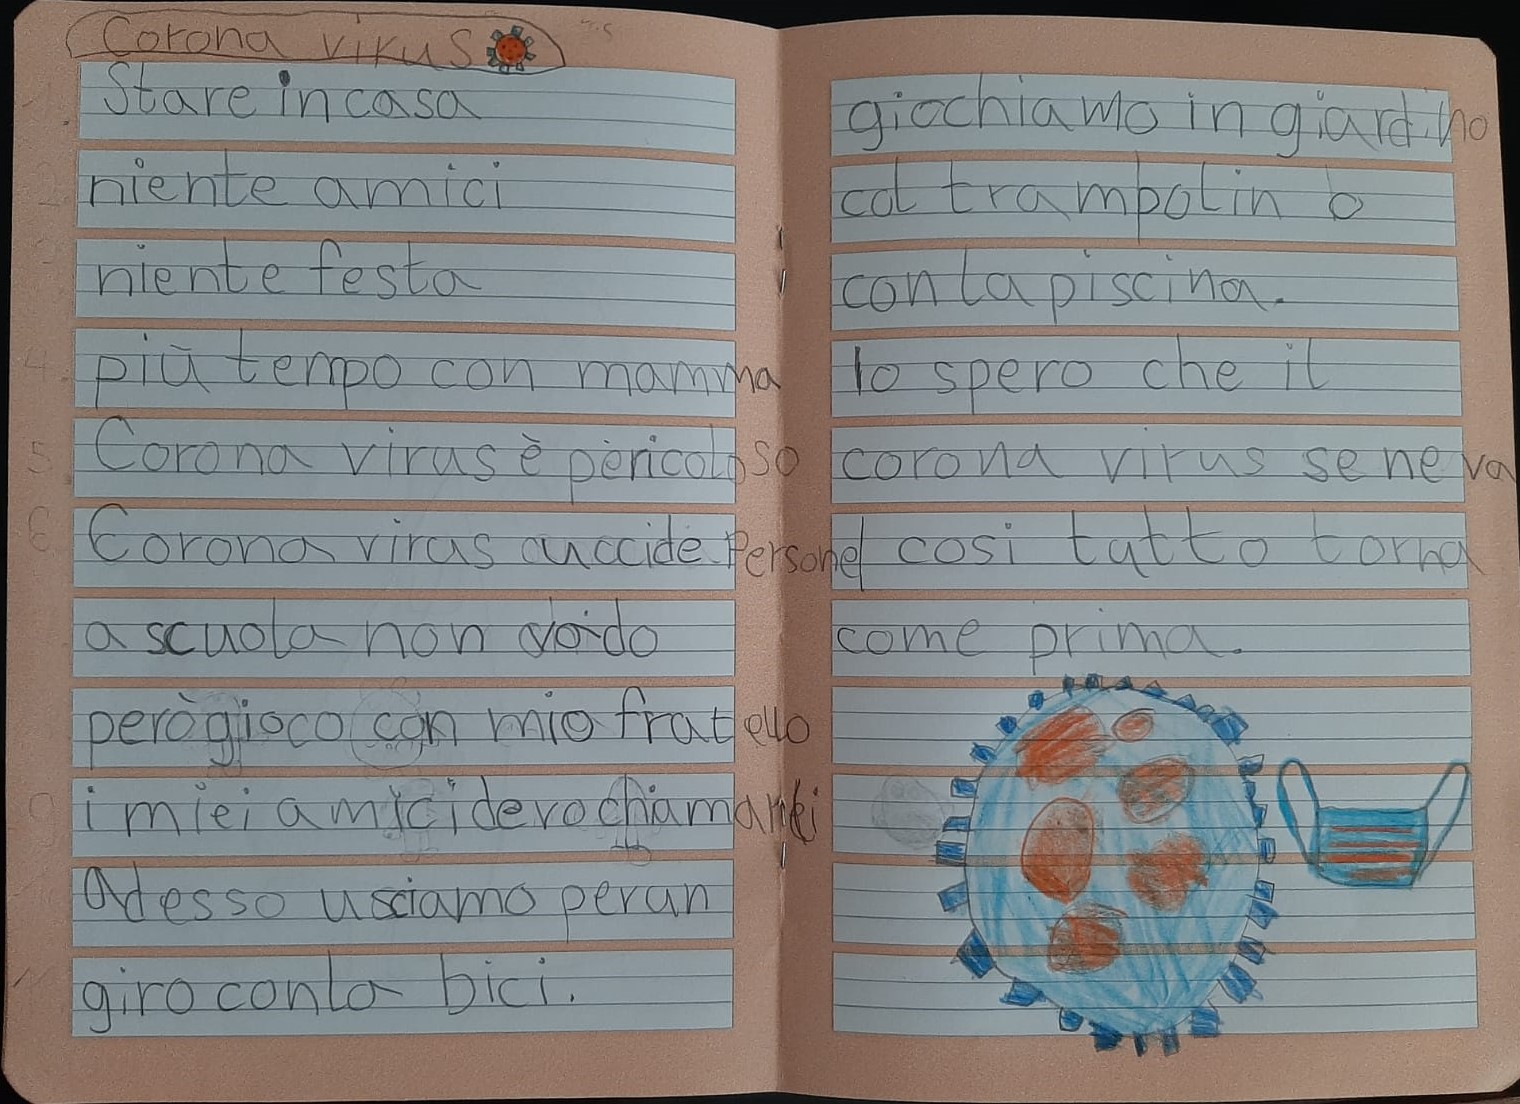 Corona virus
Stare in casa
niente amici
niente festa
più tempo con mamma
Corona virus è pericoloso
Corona virus uccide Persone
a scuola non vado
però gioco con mio fratello
i miei amici devo chiamarli
Adesso usciamo per un
giro con la bici.
giochiamo in giardino
col trampolin o
con la piscina.
Io spero che il
corona virus se ne va
cosi tutto torna
come prima.